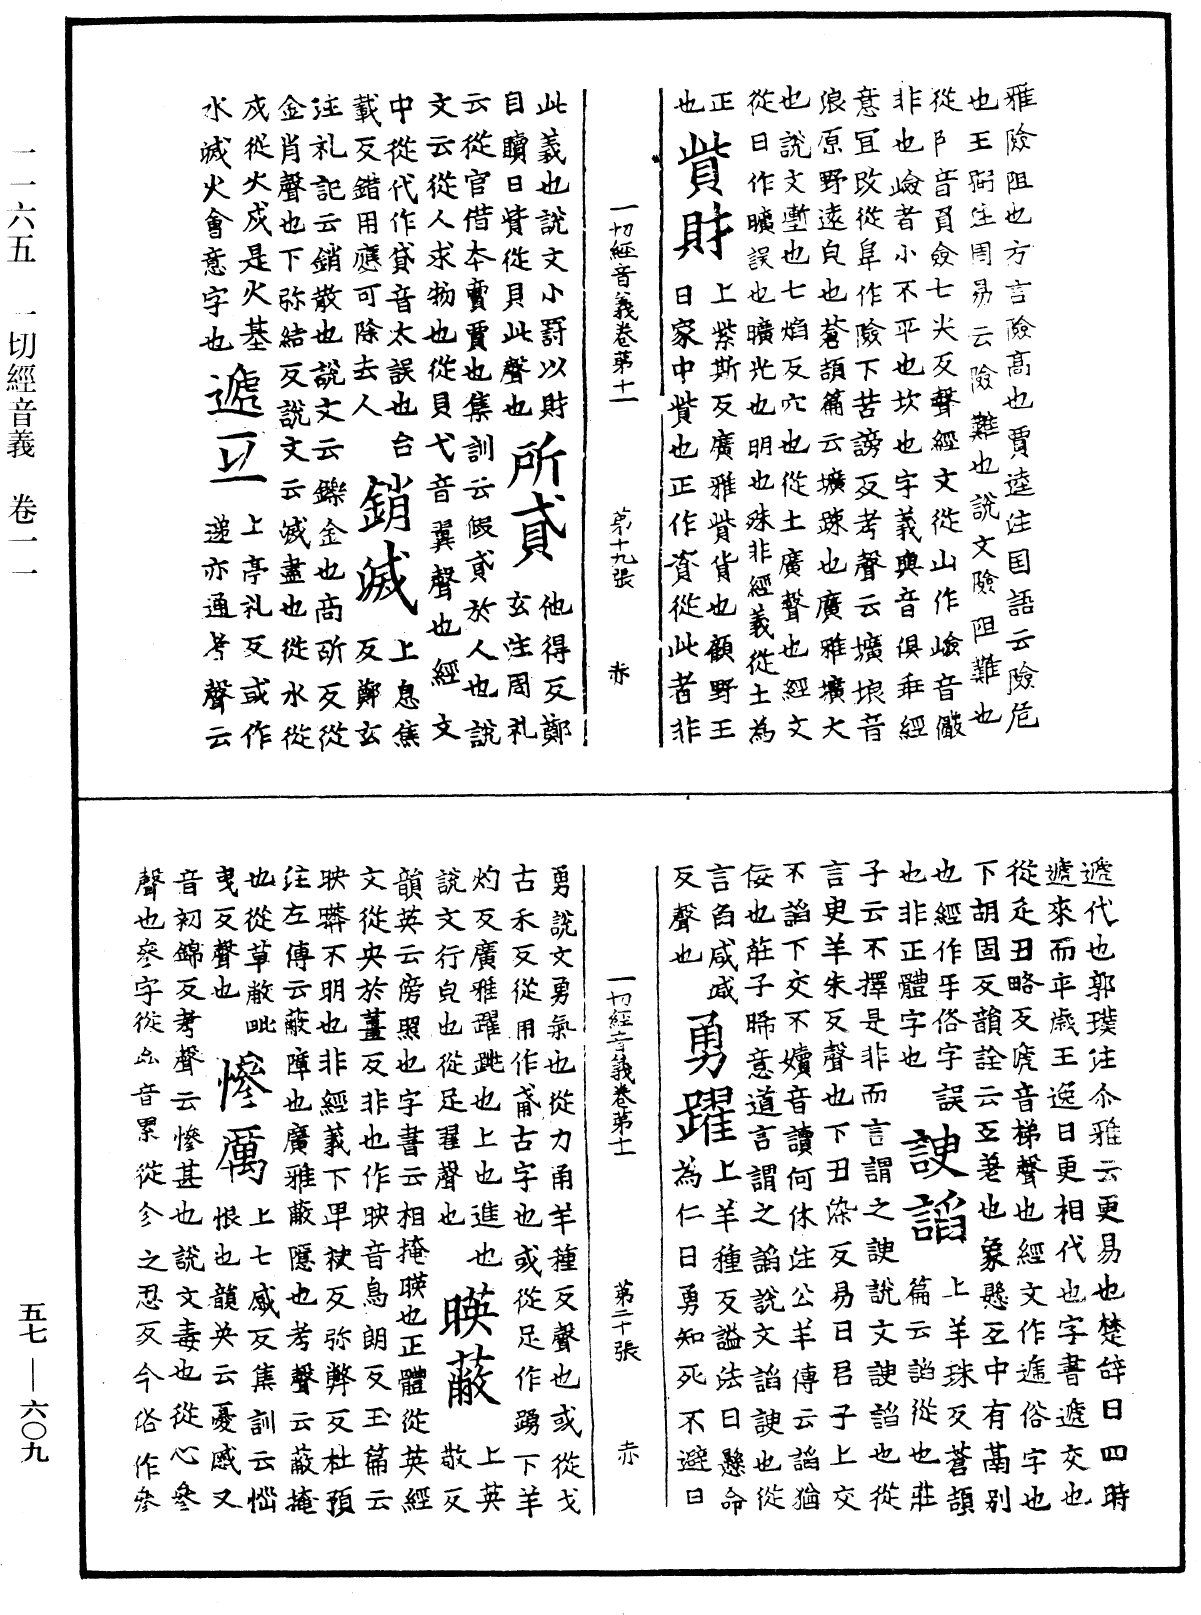 雅險阻也方言險高也賈逵注国語云險危
也王弼注周易云險難也說文險阻難也
從阝音員僉七尖反聲經文從山作嶮音儼
非也嶮者小不平也坎也字義與音俱乖經
意冝改從阜作險下苦謗反考聲云壙埌音
浪原野遠皃也蒼頡篇云壙踈也廣雅壙大
也說文塹也七焰反穴也從土廣聲也經文
從日作曠誤也曠光也明也殊非經義從土為
正也
貲財 上紫斯反廣雅貲貨也顧野王
日家中貲也正作資從此者非
一切經音義卷第十一 第十九張 赤
此義也說文小罰以財
自贖日貲從貝此聲也
所貣 他得反鄭玄注周礼
云從官借本賣賈也集訓云假貣於人也說
文云從人求物也從貝弋音翼聲也經文
中從代作貸音太誤也台
載反錯用應可除去人
銷滅 上息焦反鄭玄
注礼記云銷散也說文云鑠金也商斫反從
金肖聲也下弥結反說文云滅盡也從水從
戍從火戍是火基
水滅火會意字也
遞互 上亭礼反或作
递亦通考聲云
遞代也郭璞注尒雅云更易也楚辞日四時
遞來而卒歲王逸日更相代也字書遞交也
從辵丑略反虒音梯聲也經文作逓俗字也
下胡固反韻詮云互差也象懸互中有蓴别
也經作乎俗字誤
也非正體字也
諛諂 上羊珠反蒼頡
篇云諂從也莊
子云不擇是非而言謂之諛說文諛諂也從
言臾羊朱反聲也下丑染反易日君子上交
不諂下交不嬻音讀何休注公羊傳云諂猶
佞也莊子睎意道言謂之諂說文諂諛也從
言臽咸咸
反聲也
勇躍 上羊種反謚法日懸命
為仁日勇知死不避日
一切經音義卷第十一 第二十張 赤
勇說文勇氣也從力甬羊種反聲也或從戈
古禾反從用作𢦩古字也或從足作踴下羊
灼反廣雅躍跳也上也進也
說文行皃也從足翟聲也
暎蔽 上英敬反
韻英云傍照也字書云相掩暎也正體從英經
文從央於薑反非也作映音烏朗反玉篇云
映䁬不明也非經義下卑袂反弥弊反杜預
注左傳云蔽障也廣雅蔽隱也考聲云蔽掩
也從草敝毗
曳反聲也
慘厲 上七感反集訓云惱
恨也韻英云憂慼又
音初錦反考聲云慘甚也說文毒也從心叅
聲也叅字從厽音累從㐱之忍反今俗作参
一一六五 一切經音義 卷一一
五七——六〇九